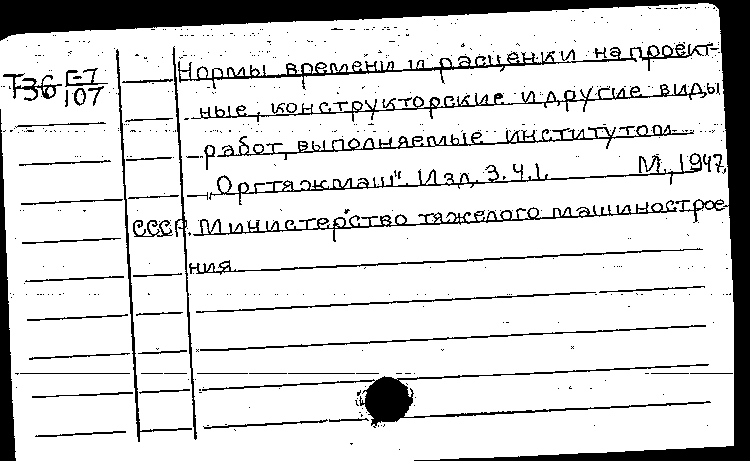 Т36 Г-7/107
Нормы времени и расценки на проект-
ные, конструкторские и другие виды
работ, выполняемые институтом
„Оргтяжмаш". Изд. 3. Ч.1. М., 1947.
СССР. Министерство тяжелого машинострое-
ния.